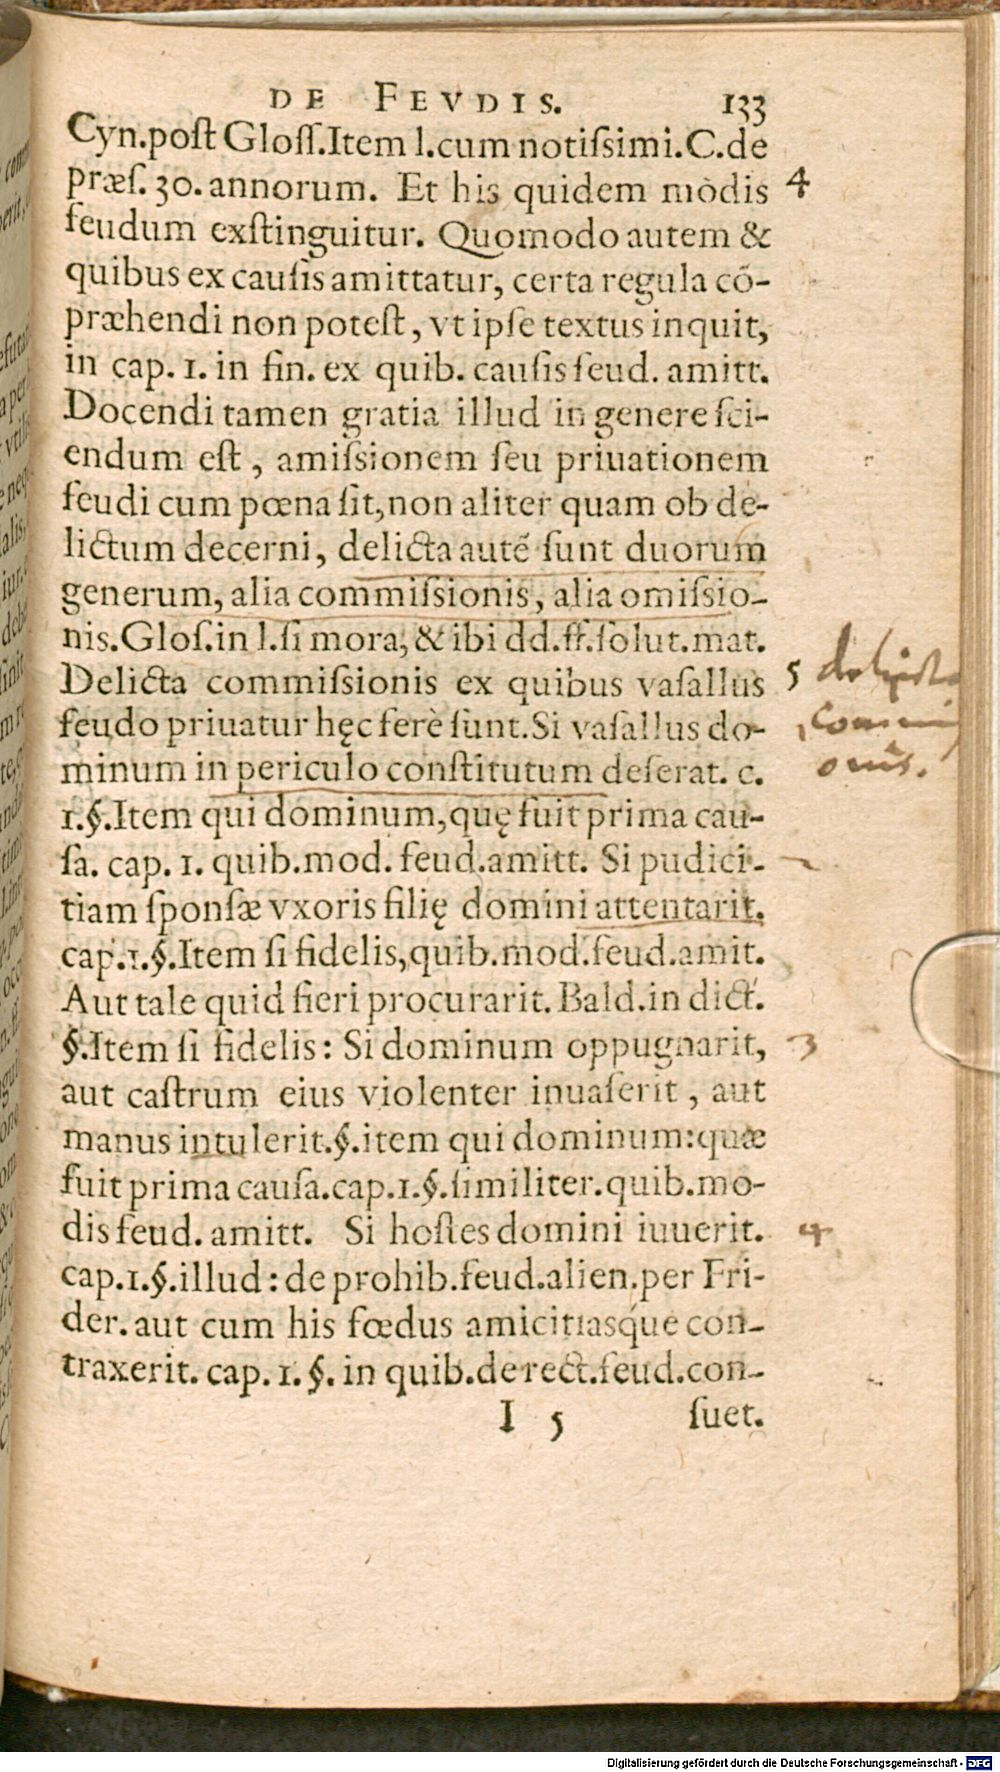 DE FEVDIS. 133
Cyn.poſt Gloſſ.Item l.cum notiſsimi.C.de
præſ. 30. annorum. Et his quidem mòdis 4
feudum exſtinguitur. Quomodo autem &
quibus ex cauſis amittatur, certa regula cō-
præhendi non poteſt, vt ipſe textus inquit,
in cap. 1. in fin. ex quib. cauſis feud. amitt.
Docendi tamen gratia illud in genere ſci-
endum eſt, amiſsionem ſeu priuationem
feudi cum pœna ſit, non aliter quam ob de-
lictum decerni, delicta autē ſunt duorum
generum, alia commiſsionis, alia omiſsio-
nis.Gloſ.in l.ſi mora, & ibi dd.ff.ſolut.mat.
Delicta commiſsionis ex quibus vaſallus 5
feudo priuatur hęc ferè ſunt.Si vaſallus do-
minum in periculo conſtitutum deſerat. c.
1.§.Item qui dominum, quę fuit prima cau-
ſa. cap. 1. quib.mod. feud.amitt. Si pudici-
tiam ſponſæ vxoris filię domini attentarit.
cap.1.§.Item ſi fidelis, quib.mod.feud.amit.
Aut tale quid fieri procurarit. Bald.in dict.
§.Item ſi fidelis: Si dominum oppugnarit, 3
aut caſtrum eius violenter inuaſerit, aut
manus intulerit.§.item qui dominum:quæ
fuit prima cauſa.cap.1.§.ſimiliter.quib.mo-
dis feud. amitt. Si hoſtes domini iuuerit. 4
cap.1.§.illud: de prohib.feud.alien.per Fri-
der. aut cum his fœdus amicitiasq́ue con-
traxerit. cap. 1. §. in quib.de rect.feud.con-
I 5 ſuet.
delicta
commiſsi
onis.
Digitalisierung gefördert durch die Deutsche Forschungsgemeinschaft - DFG